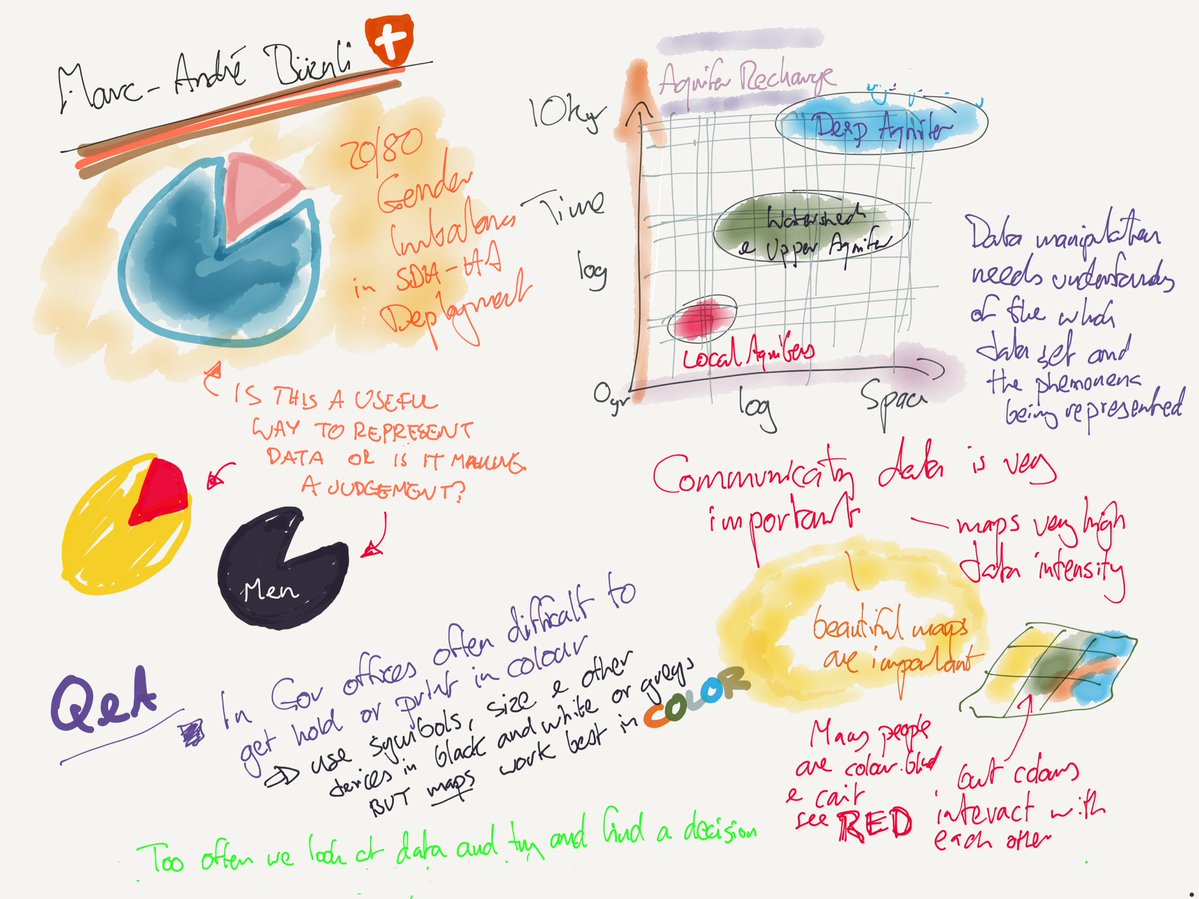 Marc-André Bünzli
20/80
Gender
Imbalance
in SDH-HA
Deployment
IS THIS A USEFUL
WAY TO REPRESENT
DATA OR IS IT MAKING
A JUDGEMENT?
Men
Aquifer Recharge
10kyr
Deep Aquifer
Time
log
Watershed
& Upper Aquifer
Local Aquifers
0yr
log
Space
Data manipulation
needs understanding
of the which
data set and
the phemonena
being represented
Communicating data is very
important
maps very high
data intensity
beautiful maps
are important
Many people
are colour blind
& can't
see RED
but colours
interact with
each other
Q&A
In Gov offices often difficult to
get hold or print in colour
use symbols, size & other
devices in black and white or greys
BUT maps work best in COLOR
Too often we look at data and try and find a decision